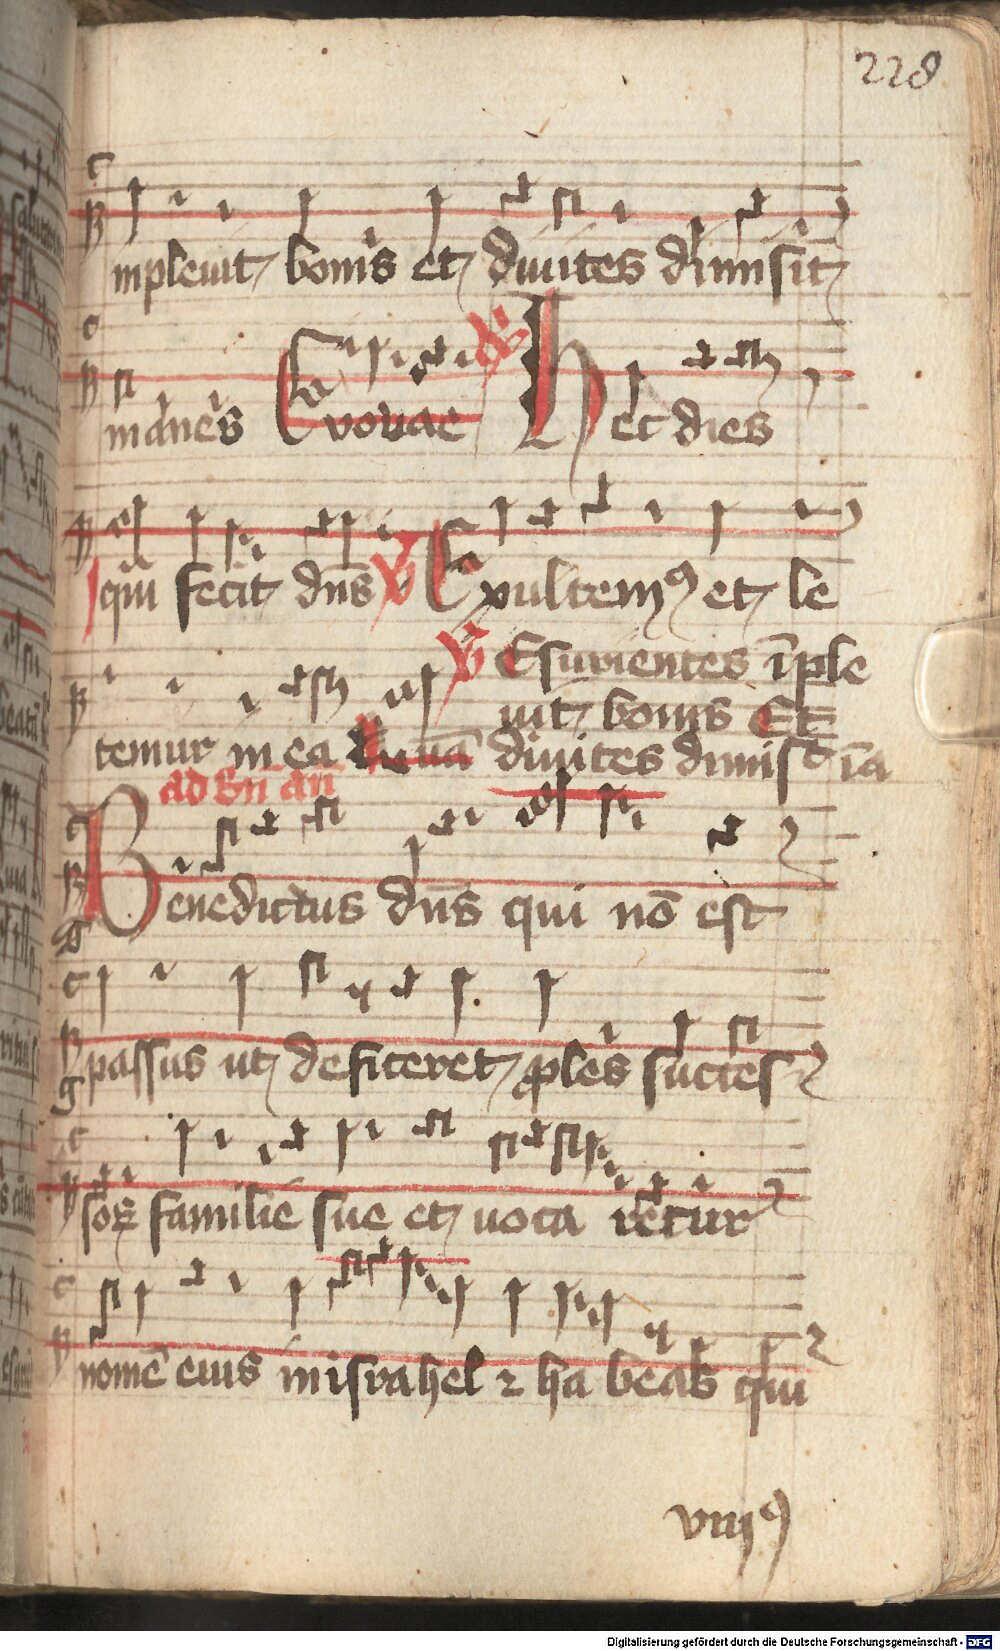 228
mpleuit bonis et diuites dimisit
inanes Evovae Hec dies
qui fecit dn̄s Exultemꝰ et le
temur in ea Esurientes īple
uit bonis Et
diuites dimis
ad Bn̄ an̄
Benedictus dn̄s qui nō est
passus ut deficeret ples succes
soꝝ familie sue et uoca retur
nomē eius in israhel ⁊ ha beab qui
viijꝰ
Digitalisierung gefördert durch die Deutsche Forschungsgemeinschaft - DFG